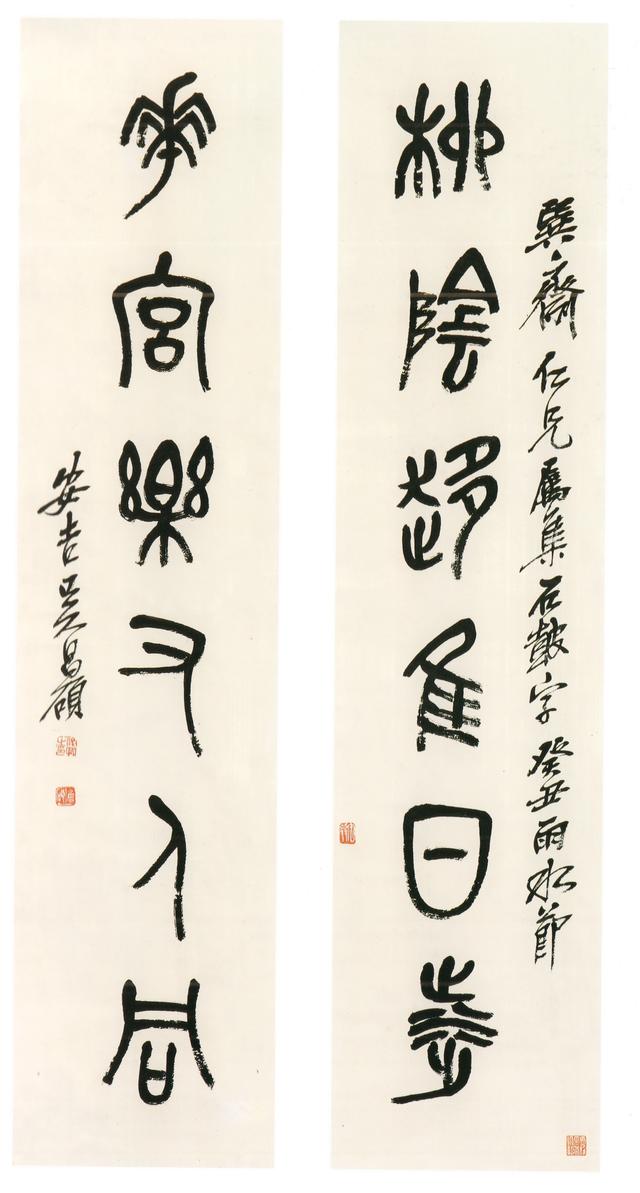 巽齋仁兄屬集石鼓字癸丑雨水節
柳陰趍隹日涉
華宮樂又人同
安吉吳昌碩